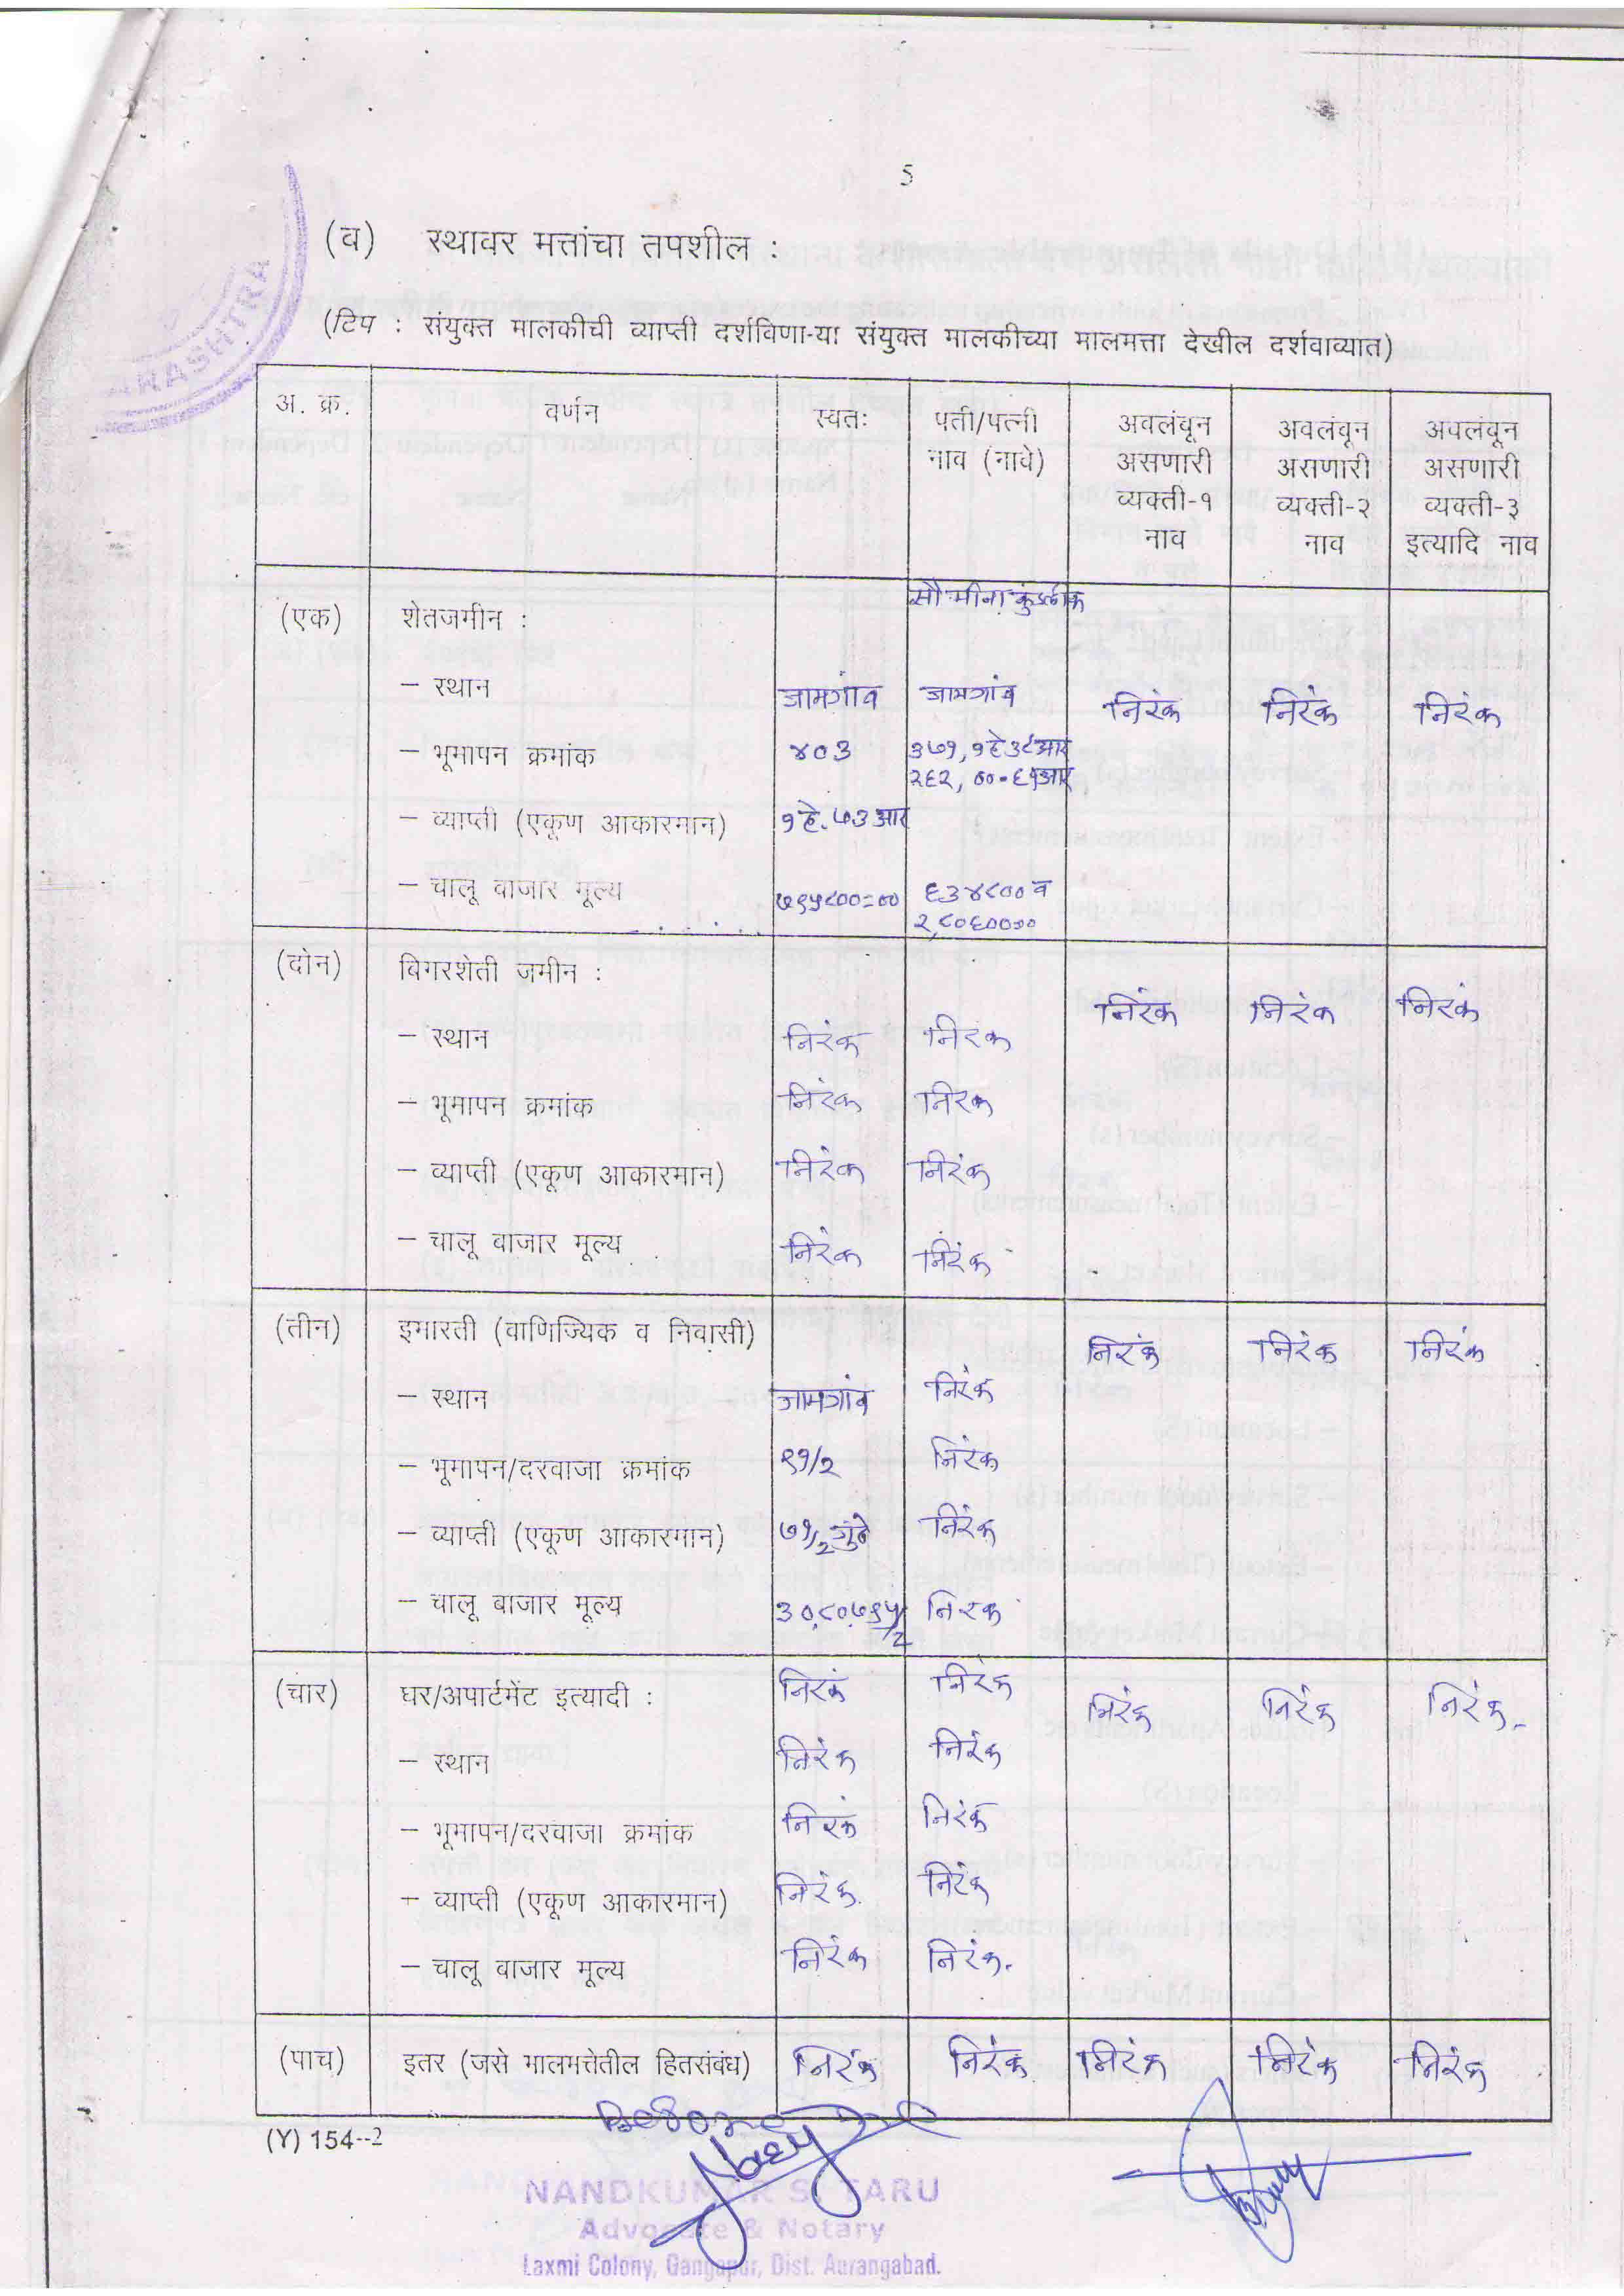 5
(ब) स्थावर मत्तांचा तपशील :
(टिप : संयुक्त मालकीची व्याप्ती दर्शविणा-या संयुक्त मालकीच्या मालमत्ता देखील दर्शवाव्यात)
अ. क्र. वर्णन स्वतः पती/पत्नी नाव (नावे) अवलंबून असणारी व्यक्ती-१ नाव अवलंबून असणारी व्यक्ती-२ नाव अवलंबून असणारी व्यक्ती-३ इत्यादि नाव
(एक) शेतजमीन : सौ मीना
– स्थान जामगांव जामगांव निरंक निरंक निरंक
– भूमापन क्रमांक ४०३ ३७१, १हे ३८आर
२६२, ००-६१आर
– व्याप्ती (एकूण आकारमान) १हे. ७३आर
– चालू बाजार मूल्य ७९५८००=०० ६३४८०० व
(दोन) बिगरशेती जमीन : निरंक निरंक निरंक
– स्थान निरंक निरंक
– भूमापन क्रमांक निरंक निरंक
– व्याप्ती (एकूण आकारमान) निरंक निरंक
– चालू बाजार मूल्य निरंक निरंक
(तीन) इमारती (वाणिज्यिक व निवासी) निरंक निरंक निरंक
– स्थान जामगांव निरंक
– भूमापन/दरवाजा क्रमांक ९१/२ निरंक
– व्याप्ती (एकूण आकारमान) ७१/२ गुंठे निरंक
– चालू बाजार मूल्य निरंक
(चार) घर/अपार्टमेंट इत्यादी : निरंक निरंक निरंक निरंक निरंक
– स्थान निरंक निरंक
– भूमापन/दरवाजा क्रमांक निरंक निरंक
– व्याप्ती (एकूण आकारमान) निरंक निरंक
– चालू बाजार मूल्य निरंक निरंक
(पाच) इतर (जसे मालमत्तेतील हितसंबंध) निरंक निरंक निरंक निरंक निरंक
(Y) 154--2
NANDKUMAR S. TARU
Advocate & Notary
Laxmi Colony, Gangapur, Dist. Aurangabad.